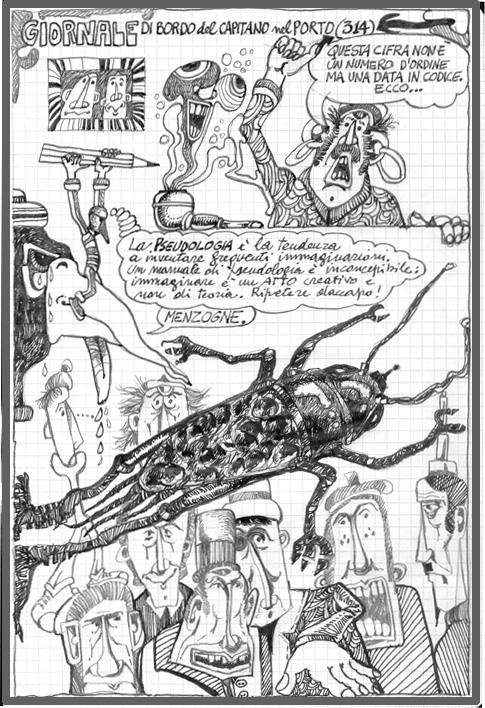 GIORNALE DI BORDO del CAPITANO nel PORTO (314)
QUESTA CIFRA NON È
UN NUMERO D'ORDINE
MA UNA DATA IN CODICE.
ECCO...
La PSEUDOLOGIA è la tendenza
a inventare frequenti immaginazioni.
Un manuale di pseudologia è inconcepibile:
immaginare è un ATTO creativo e
non di teoria. Ripetere daccapo!
MENZOGNE.